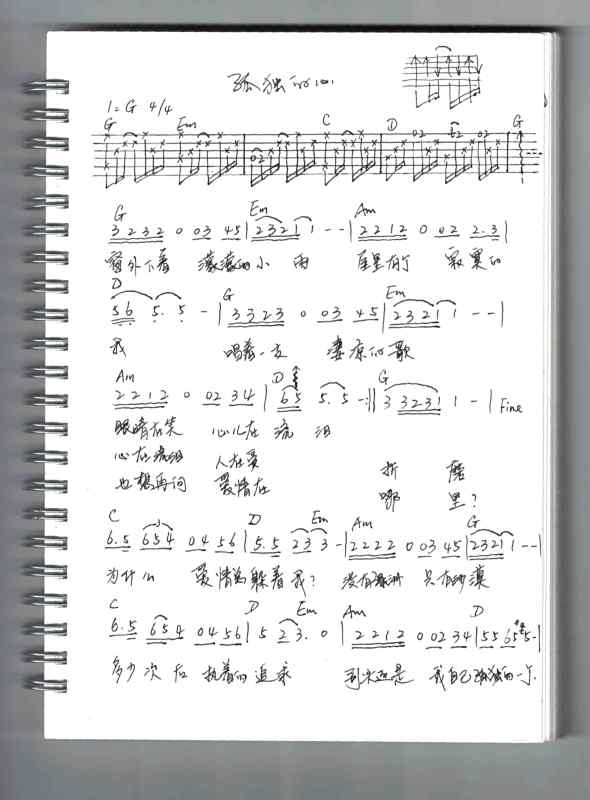 孤独的心
1=G 4/4
G Em C D G
G Em Am
3232 0 03 45 | 2321 1 - - | 2212 0 02 2.3 |
窗外下着 濛濛的小 雨 屋里有了 寂寞的
D G Em
56 5. 5 - | 3323 0 03 45 | 2321 1 - - |
我 唱着一支 凄凉的歌
Am D G
2212 0 02 34 | 65 5. 5 - :|| 3 3231 1 - | Fine
眼睛在笑 心儿在 流 泪
心在流泪 人在受 折 磨
也想再问 爱情在 哪 里?
C D Em Am G
6.5 654 04 56 | 5.5 23 3 - | 2222 0 03 45 | 2321 1 - - |
为什么 爱情为躲着我? 没有绿洲 只有沙漠
C D Em Am D
6.5 654 04 56 | 5 23. 0 | 2212 0 02 34 | 55 65 5 - |
多少次在 执着的追求 到头还是 我自己孤独的一个.